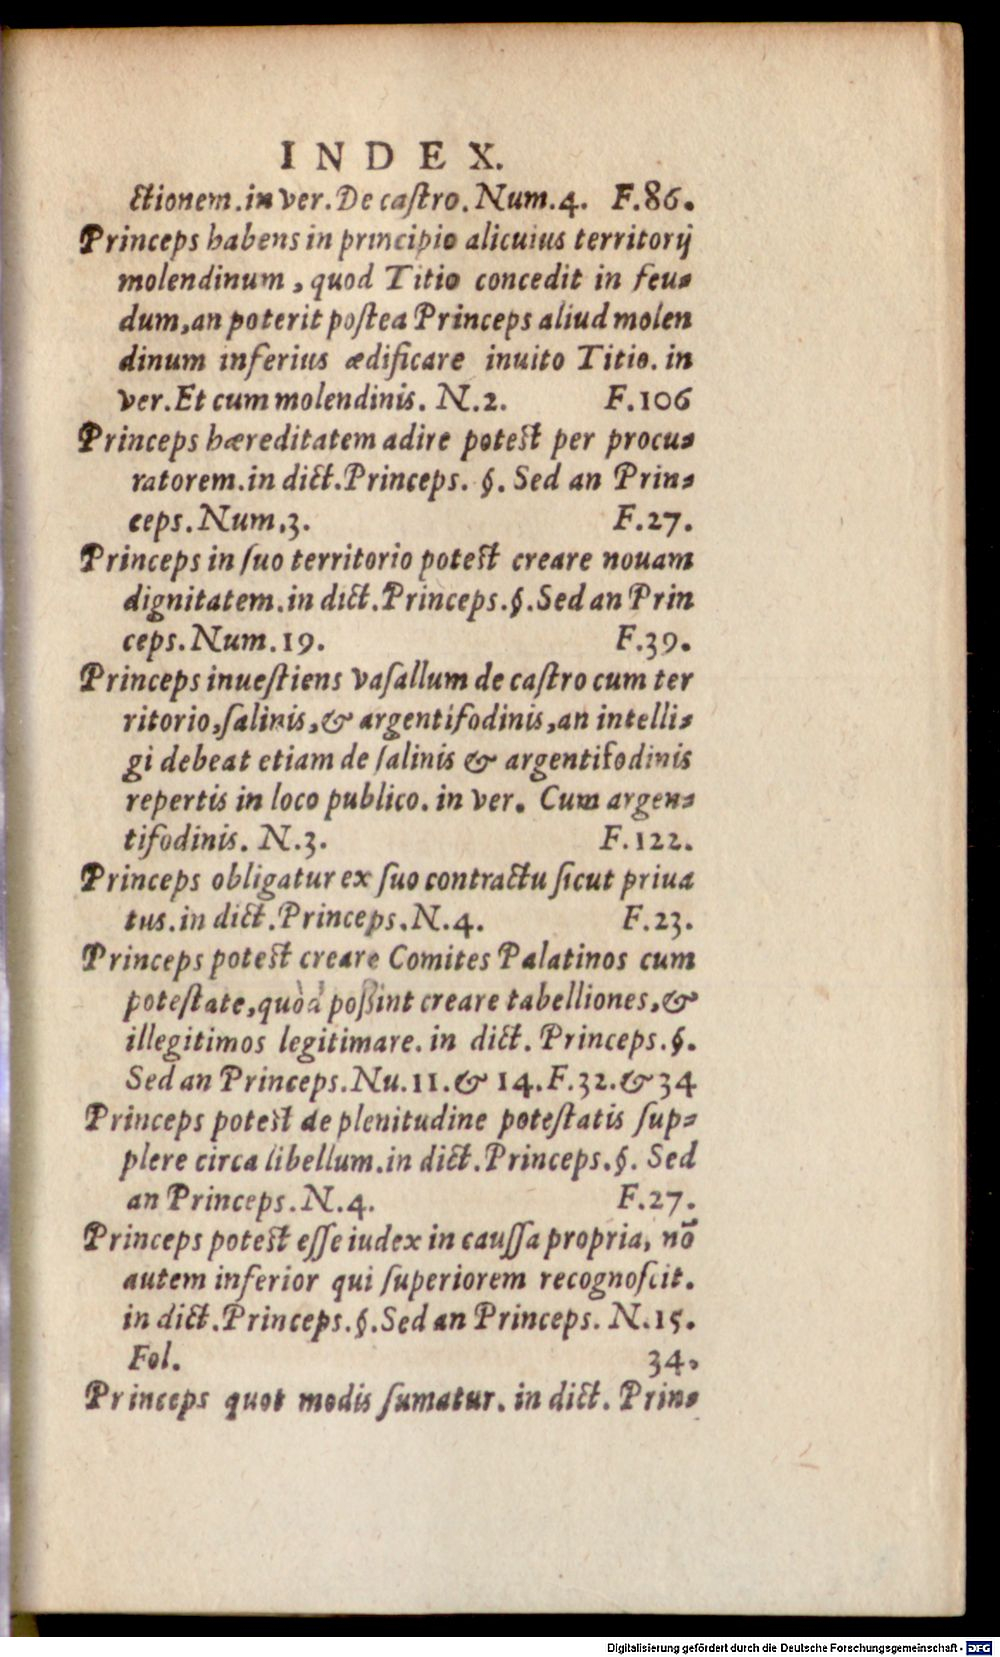 INDEX.
ctionem.in ver.De caſtro.Num.4. F.86.
Princeps habens in principio alicuius territorij
molendinum, quod Titio concedit in feu-
dum,an poterit poſtea Princeps aliud molen
dinum inferius ædificare inuito Titio. in
ver.Et cum molendinis. N.2. F.106
Princeps hæreditatem adire poteſt per procu-
ratorem.in dict.Princeps. §. Sed an Prin-
ceps.Num.3. F.27.
Princeps in ſuo territorio poteſt creare nouam
dignitatem.in dict.Princeps.§.Sed an Prin
ceps.Num.19. F.39.
Princeps inueſtiens vaſallum de caſtro cum ter
ritorio,ſalinis,& argentifodinis,an intelli-
gi debeat etiam de ſalinis & argentifodinis
repertis in loco publico. in ver. Cum argen-
tifodinis. N.3. F.122.
Princeps obligatur ex ſuo contractu ſicut priua
tus.in dict.Princeps.N.4. F.23.
Princeps poteſt creare Comites Palatinos cum
poteſtate,quòd poßint creare tabelliones,&
illegitimos legitimare. in dict. Princeps.§.
Sed an Princeps.Nu.11.& 14.F.32.& 34
Princeps poteſt de plenitudine poteſtatis ſup-
plere circa libellum.in dict.Princeps.§. Sed
an Princeps.N.4. F.27.
Princeps poteſt eſſe iudex in cauſſa propria, nō
autem inferior qui ſuperiorem recognoſcit.
in dict.Princeps.§.Sed an Princeps. N.15.
Fol. 34.
Princeps quot modis ſumatur. in dict. Prin-
Digitalisierung gefördert durch die Deutsche Forschungsgemeinschaft - DFG